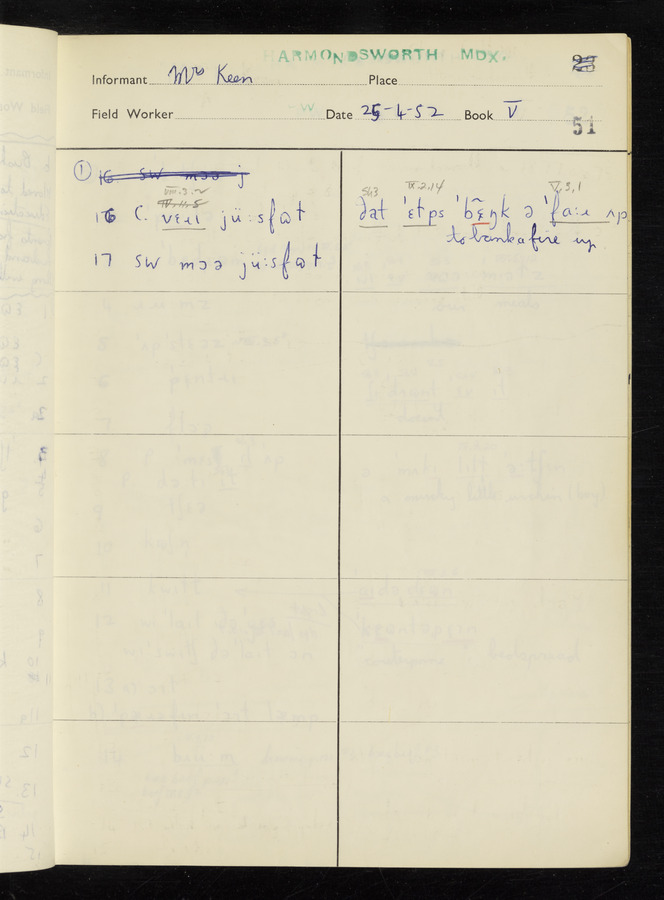 HARMONDSWORTH MDX.
Informant Mrs Keen Place
Field Worker W Date 25-4-52 Book V
51
① 16 SW mɔə j
VIII.3.2
IV.11.5
16 C. vɛɹɪ jü:sfət
17 SW mɔə jü:sfət
SH3 IX.2.14 V.3,1
ðat 'ɛtps 'bɛ̃ŋk ə 'fa:ɪ ʌp
to bank a fire up